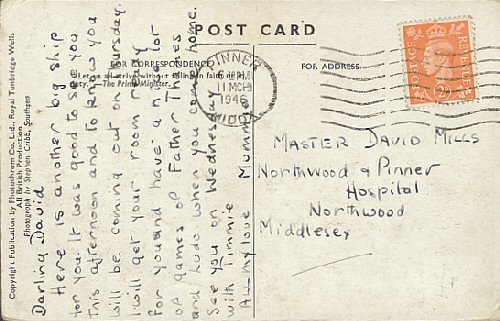 POST CARD
FOR CORRESPONDENCE
FOR ADDRESS
The Prime Minister.
PINNER
11 MCH
1946
MIDDX
POSTAGE
REVENUE
Copyright Publication by Photochrom Co. Ltd., Royal Tunbridge Wells
All British Production
Photograph by Stephen Cribb, Southsea
Darling David
Here is another big ship
for you. It was good to see you
this afternoon and to know you
will be coming out on Thursday.
I will get your room ready
for you and have a fire lit
of games of Father Thames
and Ludo when you come home.
See you on Wednesday
with Timmie
All my love Mummy
MASTER DAVID MILLS
Northwood & Pinner
Hospital
Northwood
Middlesex